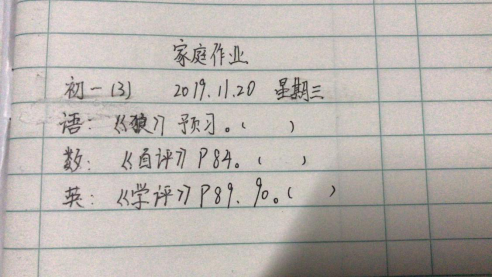 家庭作业
初一(3) 2019.11.20 星期三
语:《狼》预习。( )
数:《百评》P84。( )
英:《学评》P89、90。( )